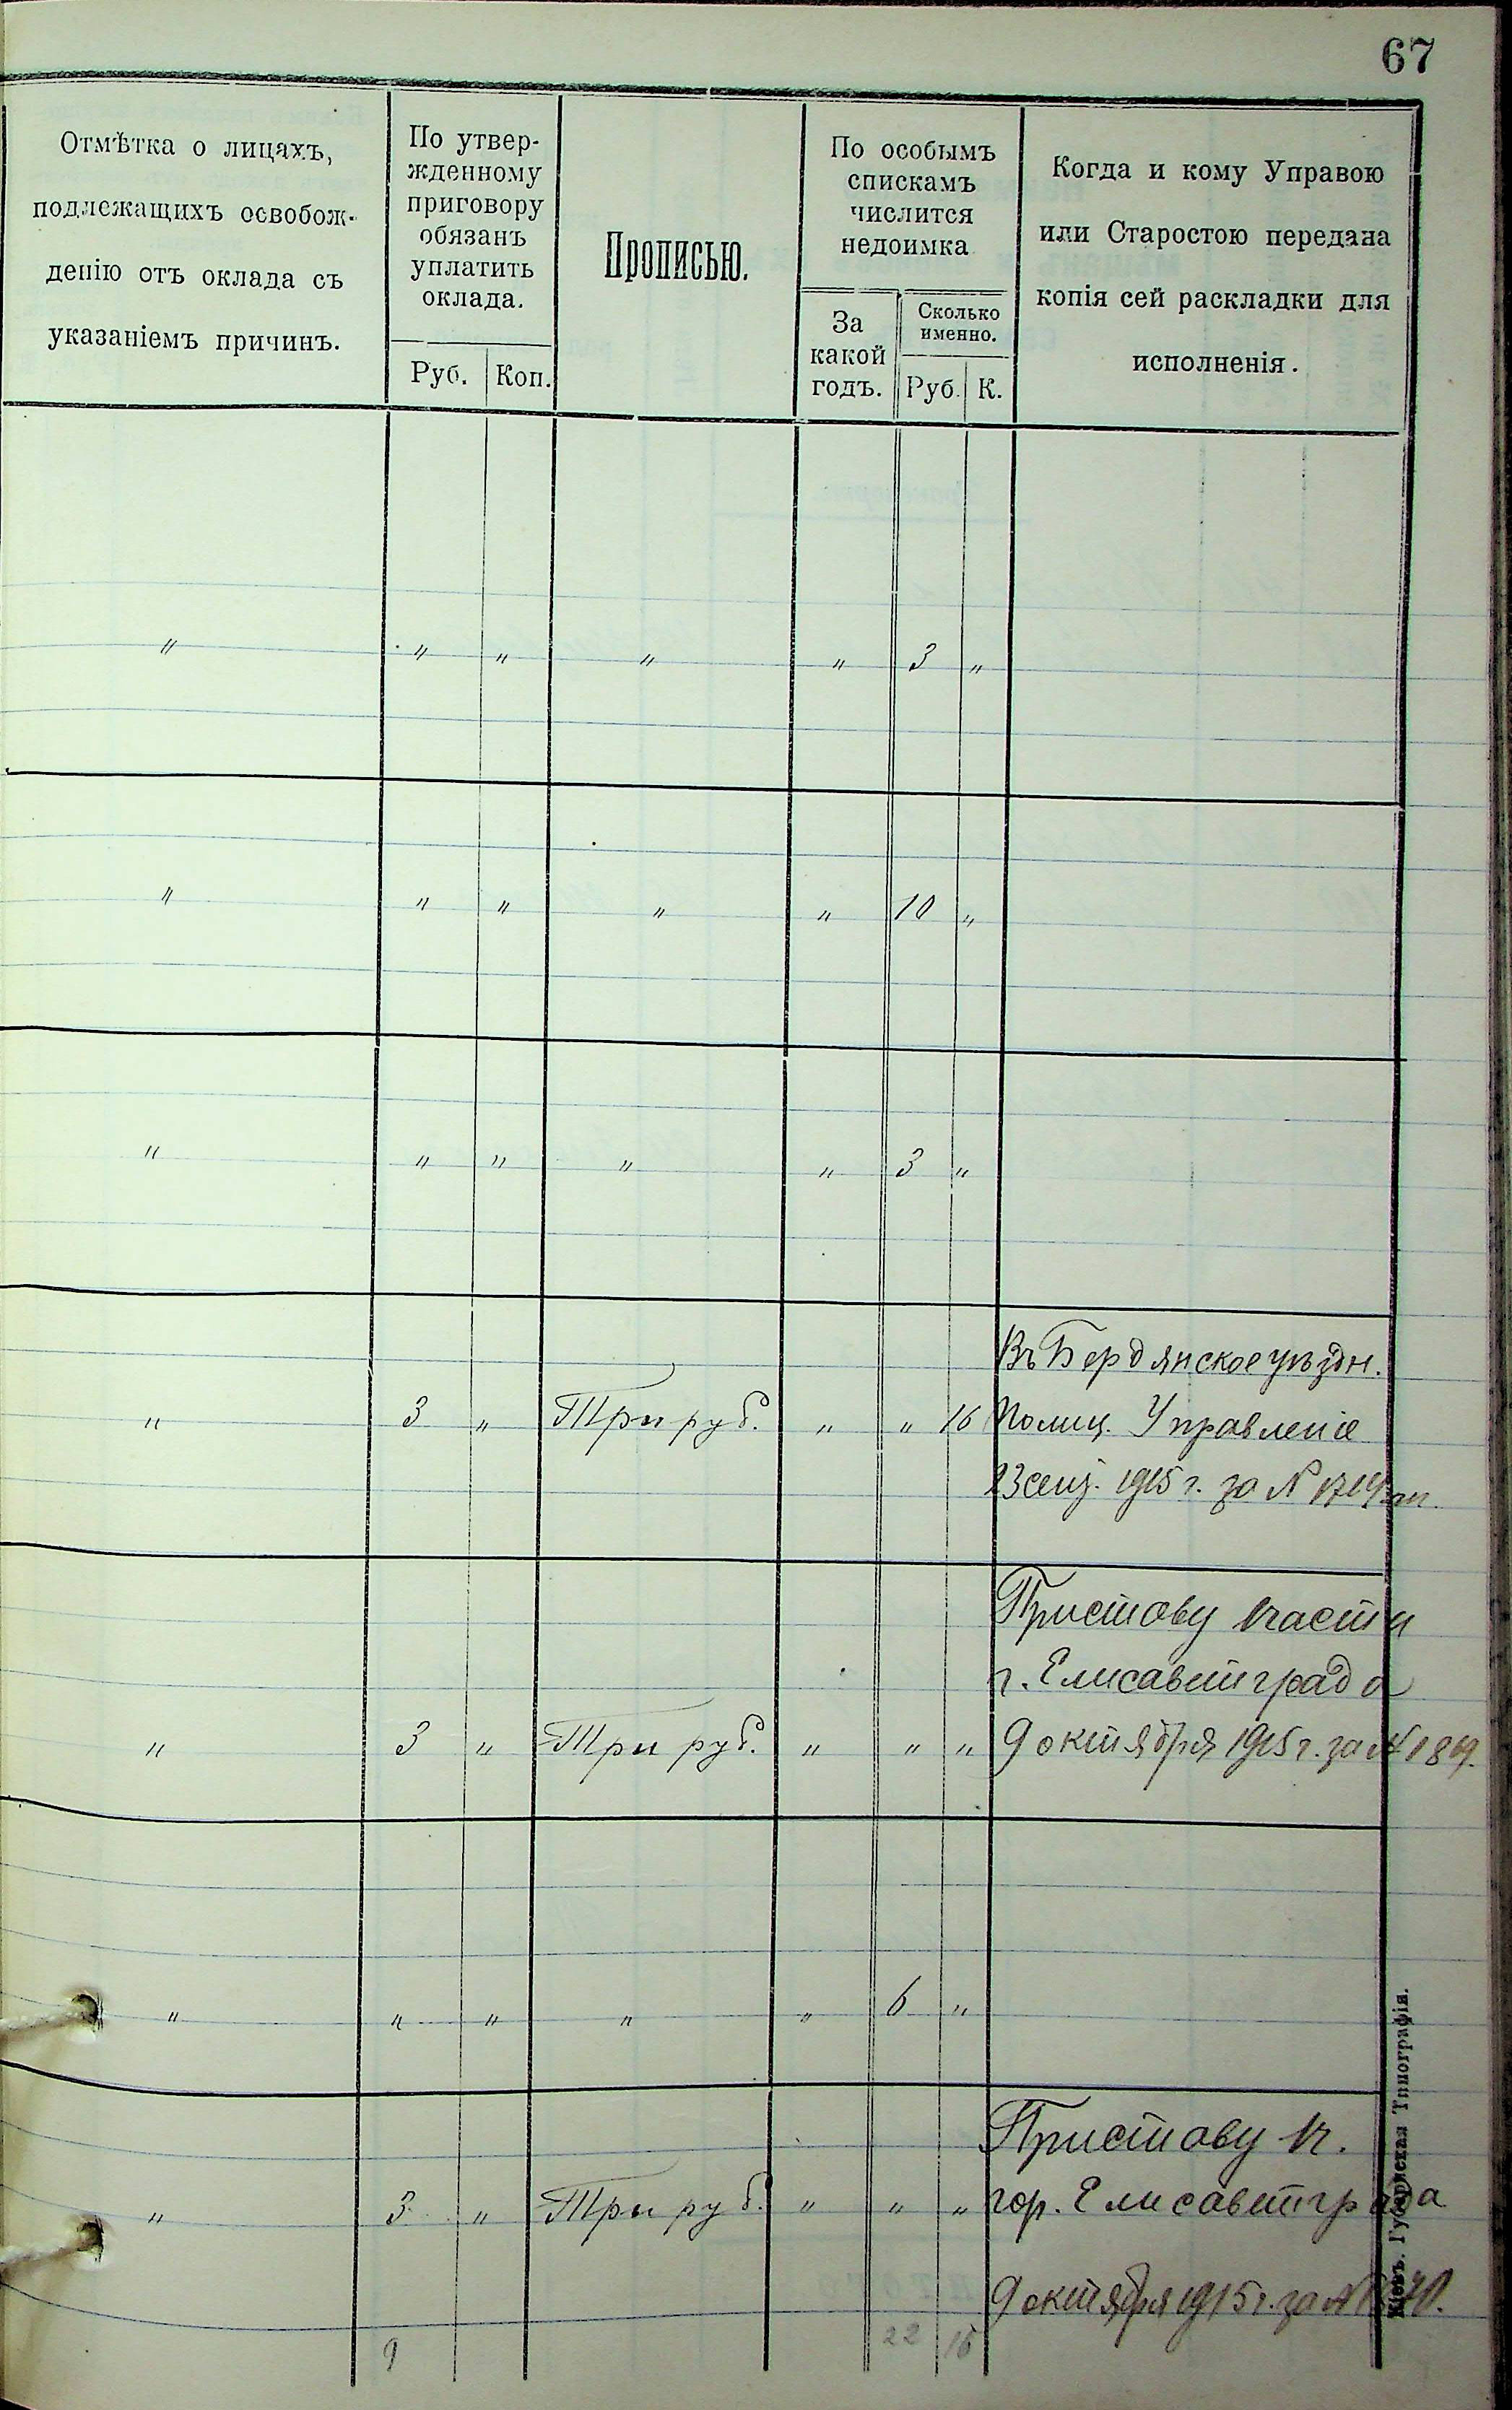 67
Отмѣтка о лицахъ,
подлежащихъ освобож-
денію отъ оклада съ
указаніемъ причинъ.
По утвер-
жденному
приговору
обязанъ
уплатить
оклада.
Руб. Коп.
Прописью.
По особымъ
спискамъ
числится
недоимка
За
какой
годъ.
Сколько
именно.
Руб. К.
Когда и кому Управою
или Старостою передана
копія сей раскладки для
исполненія.
" " " " " 3 "
" " " " " 10 "
" " " " " 3 "
Въ Бердянское уѣздн.
" 3 " Три руб. " " 16 Полиц. Управленіе
23 сент. 1915 г. за №
Приставу 1 части
г. Елисаветграда
" 3 " Три руб. " " " 9 октября 1915 г. за №
" " " " " 6 "
Приставу 1 ч.
" 3 " Три руб. " " " гор. Елисаветграда
9 октября 1915 г. за №
9 22 16
Кіевъ. Губернская Типографія.